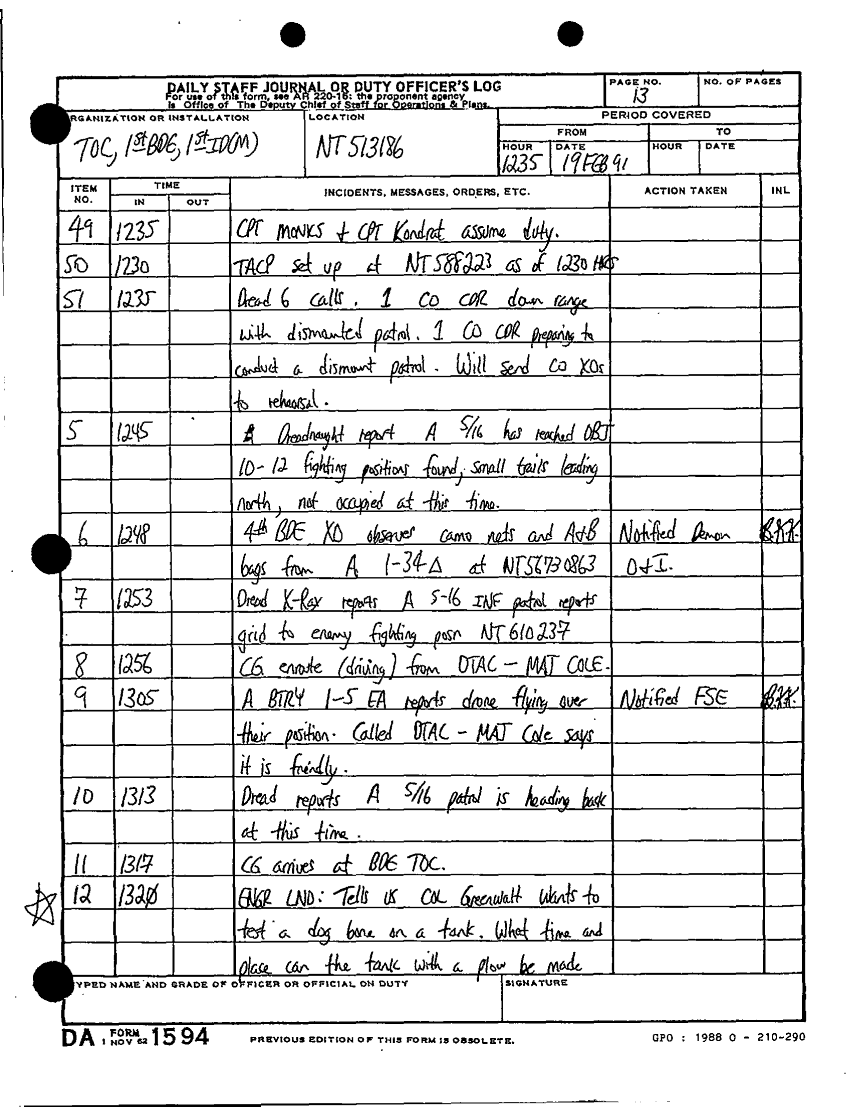 DAILY STAFF JOURNAL OR DUTY OFFICER'S LOG
For use of this form, see AR 220-15; the proponent agency
is Office of The Deputy Chief of Staff for Operations & Plans.
PAGE NO.
13
NO. OF PAGES
RGANIZATION OR INSTALLATION
TOC, 1st BDE, 1st ID(M)
LOCATION
NT 513186
PERIOD COVERED
FROM
TO
HOUR
1235
DATE
19 FEB 91
HOUR
DATE
ITEM NO.
TIME
IN
OUT
INCIDENTS, MESSAGES, ORDERS, ETC.
ACTION TAKEN
INL
49 1235 CPT MONKS + CPT Kondrat assume duty.
50 1230 TACP set up at NT 588223 as of 1230 HRS
51 1235 Dread 6 calls. 1 CO CDR down range
with dismounted patrol. 1 CO CDR preparing to
conduct a dismount patrol. Will send CO XOs
to rehearsal.
5 1245 Dreadnaught report A 5/16 has reached OBJ
10-12 fighting positions found, small tails leading
north, not occupied at this time.
6 1248 4th BDE XO observes camo nets and A+B Notified Demon
bags from A 1-34 Δ at NT56730863 O+I.
7 1253 Dread X-Ray reports A 5-16 INF patrol reports
grid to enemy fighting posn NT 610237
8 1256 CG enroute (driving) from DTAC - MAT COLE.
9 1305 A BTRY 1-5 FA reports drone flying over Notified FSE
their position. Called DTAC - MAT Cole says
it is friendly.
10 1313 Dread reports A 5/16 patrol is heading back
at this time.
11 1317 CG arrives at BDE TOC.
12 1320 ENGR LNO: Tells us COL Greenwalt wants to
test a dog bone on a tank. What time and
place can the tank with a plow be made
YPED NAME AND GRADE OF OFFICER OR OFFICIAL ON DUTY
SIGNATURE
DA FORM 1 NOV 62 1594
PREVIOUS EDITION OF THIS FORM IS OBSOLETE.
GPO : 1988 O - 210-290